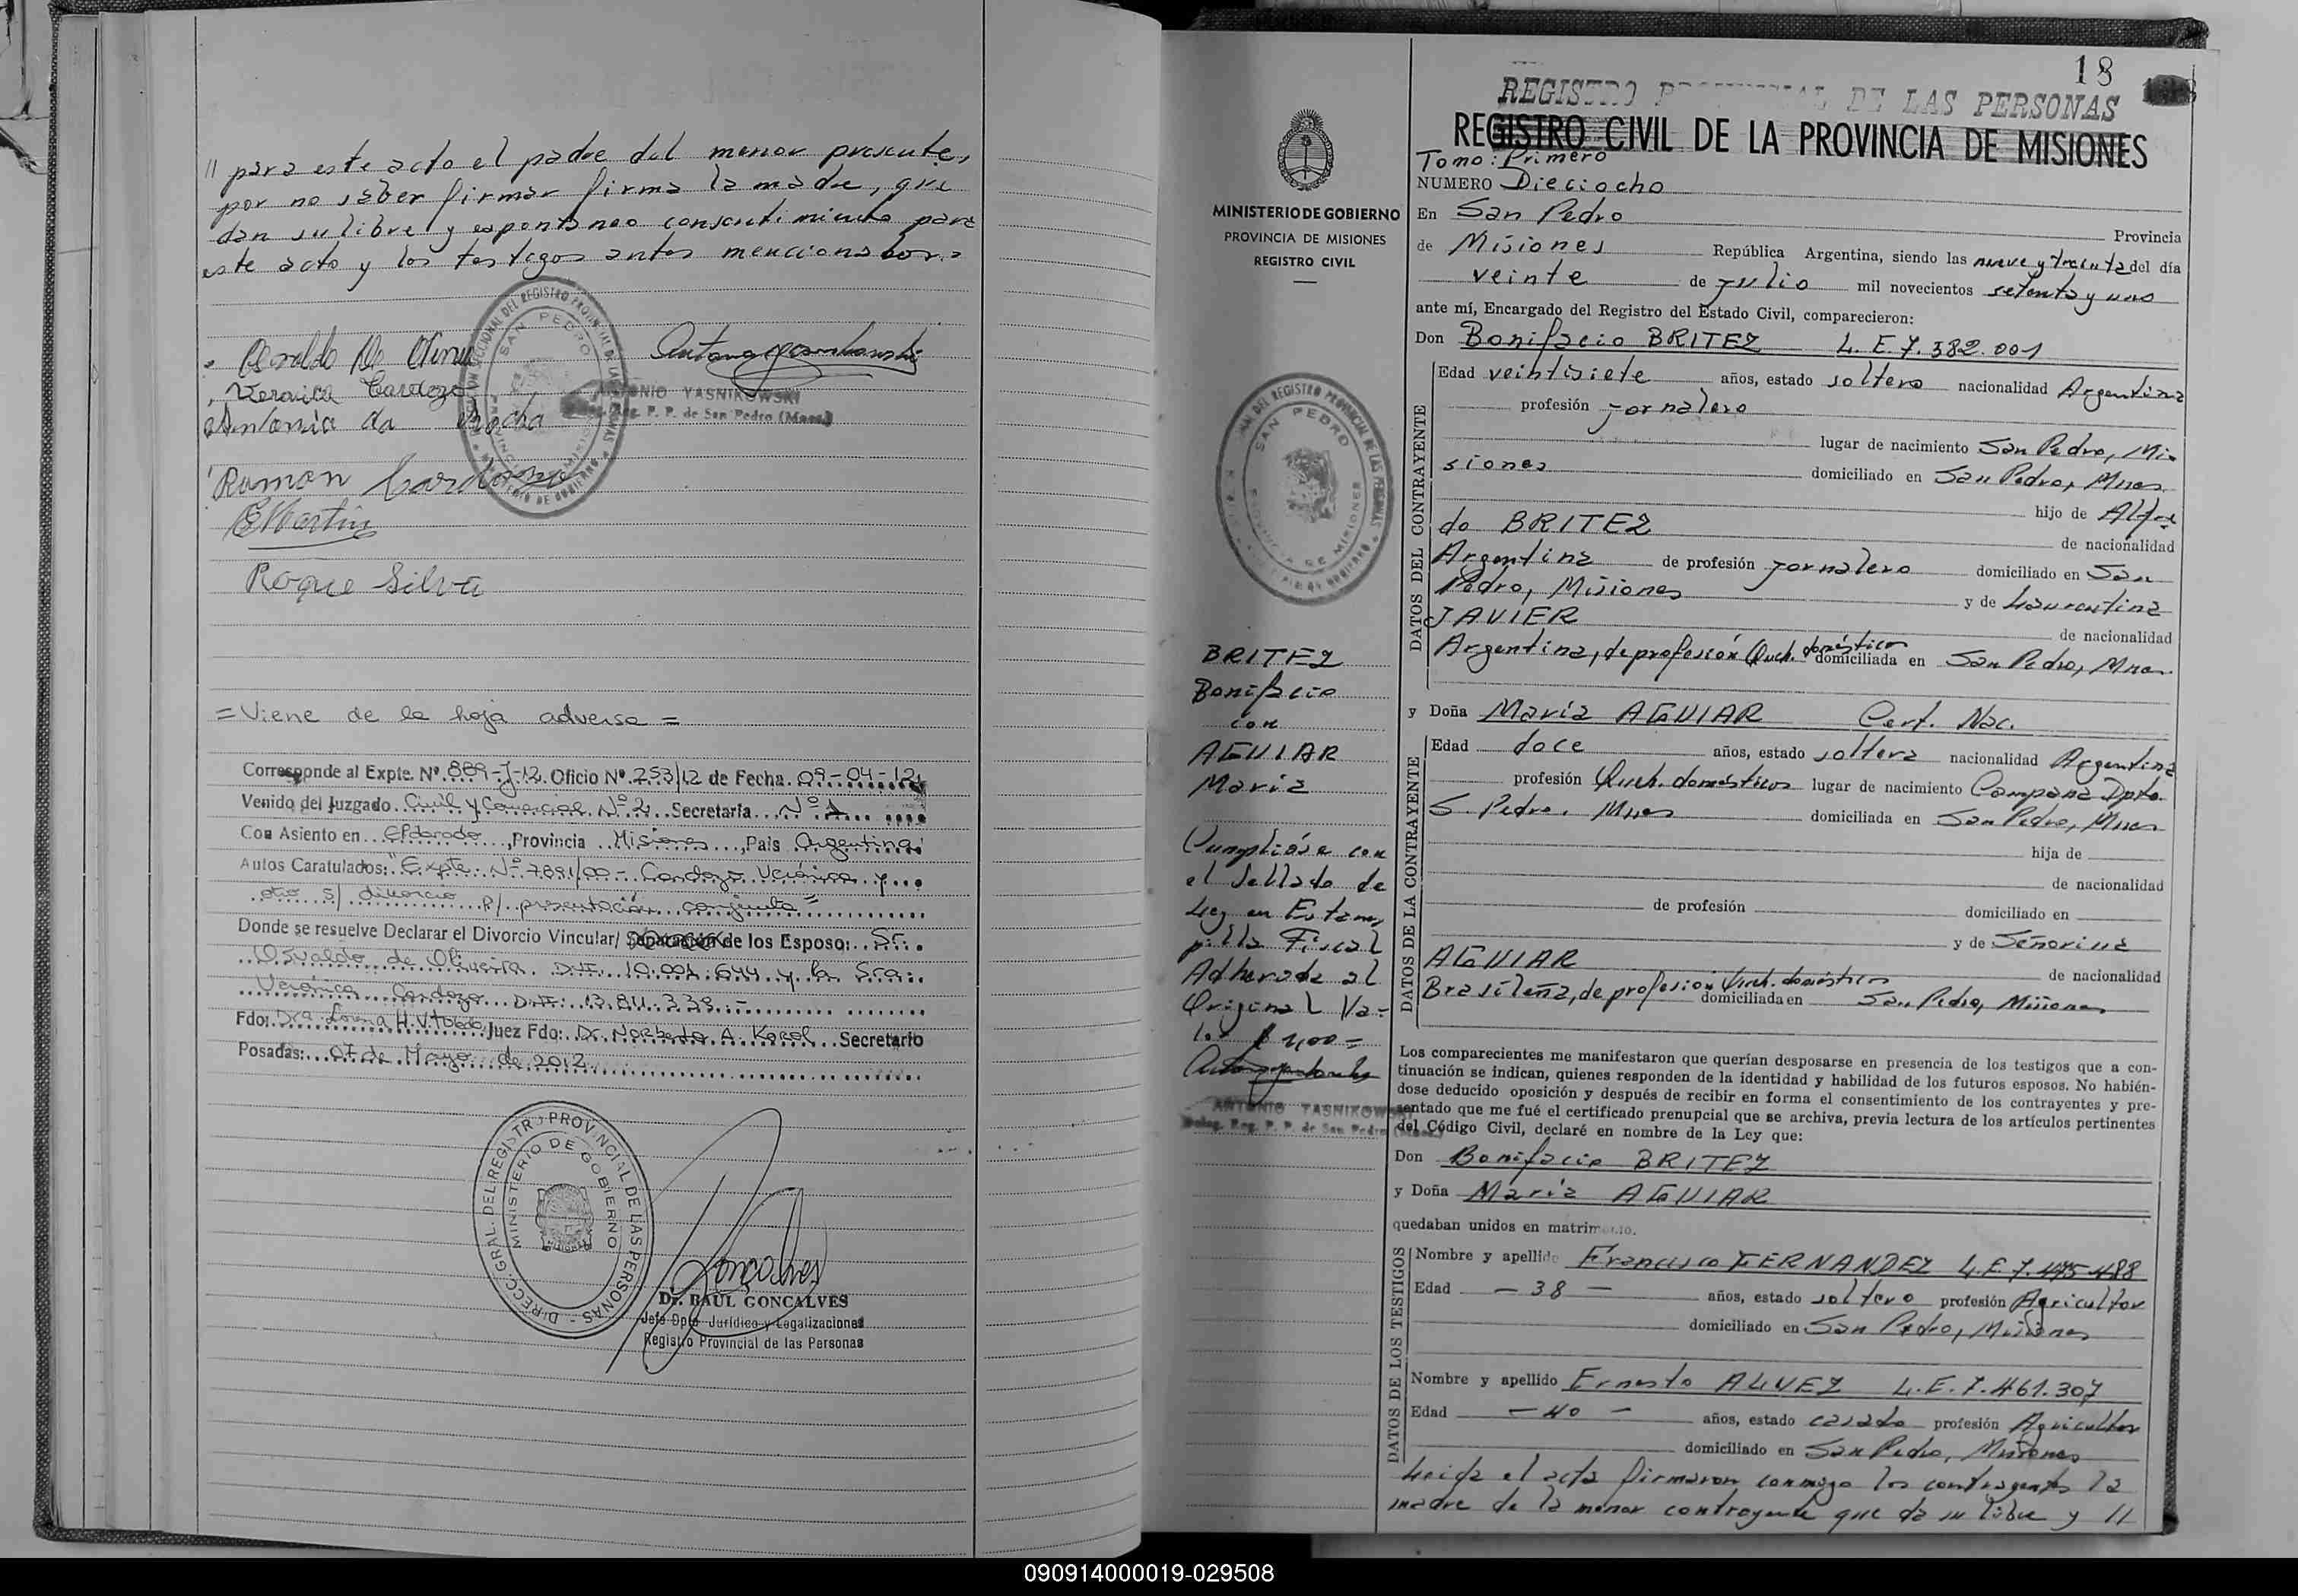 // para este acto el padre del menor presente,
por no saber firmar firma la madre, que
dan su libre y espontaneo consentimiento para
este acto y los testigos antes mencionados.=
Osvaldo De Olivera
Veronica Cardozo
Antonia da Rocha
ANTONIO YASNIKOWSKI
Deleg. Reg. P. P. de San Pedro (Mnes.)
Ramon Cardozo
EMartin
Roque Silva
= Viene de la hoja adversa =
Corresponde al Expte. Nº 889-J-12 Oficio Nº 253/12 de Fecha 09-04-12
Venido del Juzgado Civil y Comercial Nº 2 Secretaria Nº 1
Con Asiento en Eldorado, Provincia Misiones, País Argentina
Autos Caratulados: "Expte. Nº 7891/00 - Cardozo Verónica y
otro s/ divorcio p/ presentación conjunta"
Donde se resuelve Declarar el Divorcio Vincular/ Separación de los Esposo: Sr.
Osvaldo de Olivera D.N.I. 10.001.644 y la Sra.
Verónica Cardozo D.N.I. 13.811.338.-
Fdo: Dra. Lorena H.V. Toledo Juez Fdo: Dr. Norberto A. Korol Secretario
Posadas: 07 de Mayo de 2012
DIRECC. GRAL. DEL REGISTRO PROVINCIAL DE LAS PERSONAS
MINISTERIO DE GOBIERNO
MISIONES
Goncalves
Dr. RAUL GONCALVES
Jefe Dpto Jurídico y Legalizaciones
Registro Provincial de las Personas
18
REGISTRO PROVINCIAL DE LAS PERSONAS
REGISTRO CIVIL DE LA PROVINCIA DE MISIONES
MINISTERIO DE GOBIERNO
PROVINCIA DE MISIONES
REGISTRO CIVIL
SAN PEDRO
BRITEZ
Bonifacio
con
AGUIAR
Maria
Cumplióse con
el Sellado de
Ley en Estam,
pilla Fiscal
Adherada al
Original Va-
lor $ 1,00=
ANTONIO YASNIKOWSKI
Deleg. Reg. P. P. de San Pedro (Mnes.)
Tomo: Primero
NUMERO Dieciocho
En San Pedro Provincia
de Misiones República Argentina, siendo las nueve y treinta del día
veinte de Julio mil novecientos setenta y uno
ante mí, Encargado del Registro del Estado Civil, comparecieron:
Don Bonifacio BRITEZ L.E.7.382.001
DATOS DEL CONTRAYENTE
Edad veintisiete años, estado soltero nacionalidad Argentina
profesión jornalero
lugar de nacimiento San Pedro, Mi-
siones domiciliado en San Pedro, Mnes.
hijo de Alfre
do BRITEZ de nacionalidad
Argentina de profesión jornalero domiciliado en San
Pedro, Misiones y de Laurentina
JAVIER de nacionalidad
Argentina, de profesión Queh. domésticos domiciliada en San Pedro, Mnes.
y Doña Maria AGUIAR Cert. Nac.
DATOS DE LA CONTRAYENTE
Edad doce años, estado soltera nacionalidad Argentina
profesión Queh. domésticos lugar de nacimiento Campana Dpto.
S. Pedro. Mnes domiciliada en San Pedro, Mnes
hija de
de nacionalidad
de profesión domiciliado en
y de Señorina
AGUIAR de nacionalidad
Brasileña, de profesión Queh. domésticos domiciliada en San Pedro, Misiones
Los comparecientes me manifestaron que querían desposarse en presencia de los testigos que a con-
tinuación se indican, quienes responden de la identidad y habilidad de los futuros esposos. No habién-
dose deducido oposición y después de recibir en forma el consentimiento de los contrayentes y pre-
sentado que me fué el certificado prenupcial que se archiva, previa lectura de los artículos pertinentes
del Código Civil, declaré en nombre de la Ley que:
Don Bonifacio BRITEZ
y Doña Maria AGUIAR
quedaban unidos en matrimonio.
DATOS DE LOS TESTIGOS
Nombre y apellido Francisco FERNANDEZ L.E.7.475.488
Edad - 38 - años, estado soltero profesión Agricultor
domiciliado en San Pedro, Misiones
Nombre y apellido Ernesto ALVEZ L.E.7.461.307
Edad - 40 - años, estado casado profesión Agricultor
domiciliado en San Pedro, Misiones
Leida el acta firmaron conmigo los contrayentes la
madre de la menor contrayente que da su libre y //
090914000019-029508